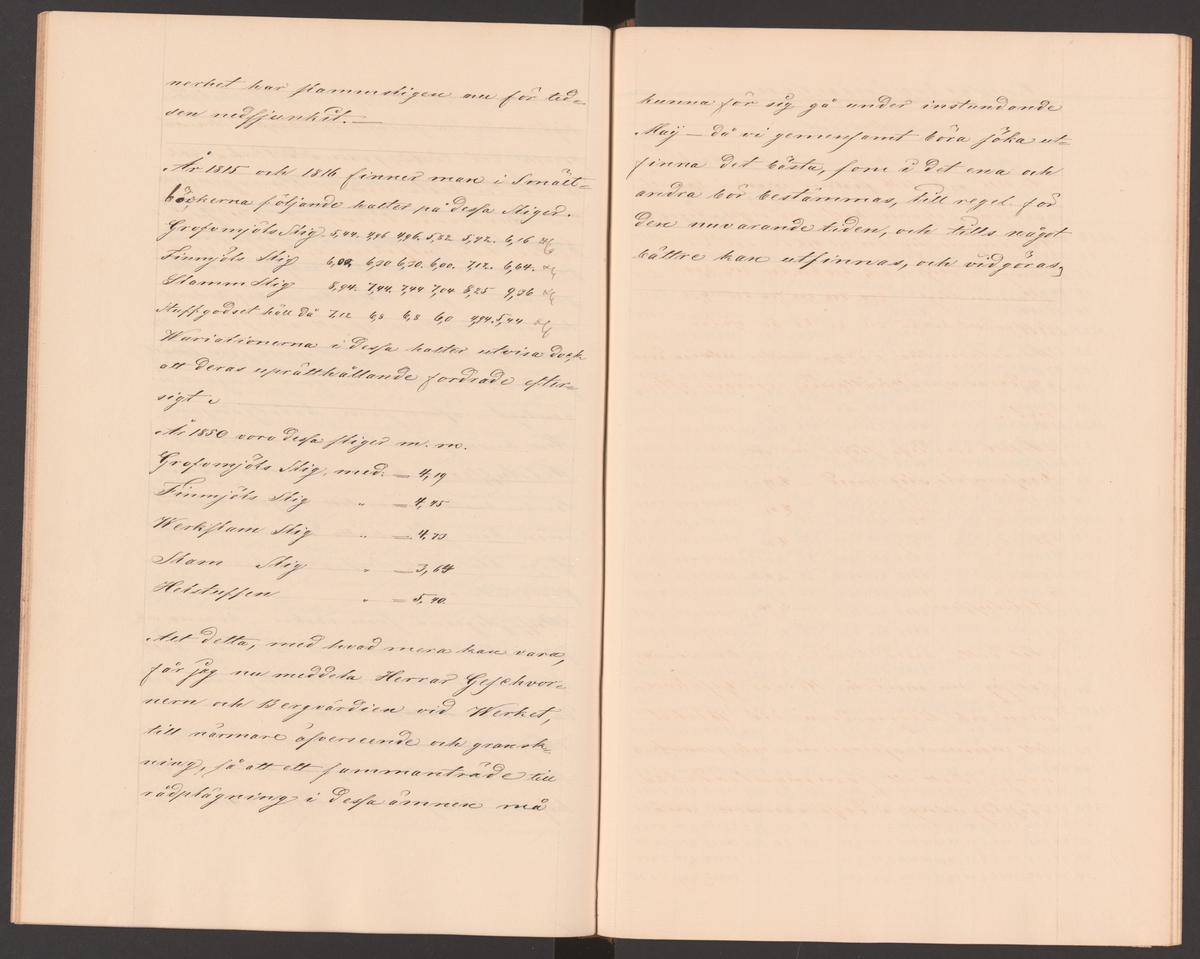 nerhet har stammstigen nu för tid-
sen nedsjunkit. —
År 1815 och 1816 finner man i Smält-
böckerna följande halter på dessa Stiger.
Grofvmjöls Stig. 5,44. 4,96 4,96. 5,52 5,92. 6,16
Finmjöls Stig 6,00. 6,20 6,20. 6,00. 7,12. 6,64.
Stamm Stig 8,94. 7,44. 7,44 7,04 8,25 9,36
Stuffgodset höll då 7,12 6,8 6,8 6,0 4,94. 5,44
Wariationerna i dessa halter utvisa dock
att deras upprätthållande fordrade efter-
sigt.
År 1850 voro dessa stiger m. m.
Grofvmjöls Stig, med. — 4,19
Finmjöls Stig " — 4,45
Werkstam Stig " — 4,73
Stam Stig " — 3,64
Helstuffen " — 5,40.
Allt detta, med hvad mera kan vara,
får jag nu meddela Herrar Geschvor-
nern och Bergvärdien vid Werket,
till närmare öfverseende och gransk-
ning, så att ett sammanträde till
rådplägning i dessa ämnen må
kunna för sig gå under instundande
Maÿ — då vi gemensamt böra söka ut-
finna det bästa, som i det ena och
andra bör bestämmas, till regel för
den nuvarande tiden, och tills något
bättre kan utfinnas, och vidgöras,